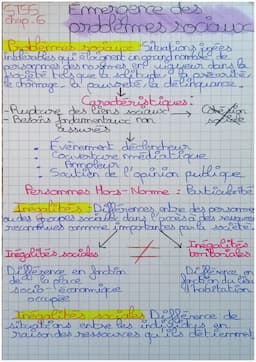 ST2S
chap. 6
Emergence des
problèmes sociaux
Problèmes sociaux : Situations jugées
indésirables qui éloignent un grand nombre de
personnes des normes en vigueur dans la
société tels que la solitude, la précarité,
le chômage, la pauvreté, la délinquance.
Caractéristiques :
- Rupture des liens sociaux
Cohésion
sociale
- Besoins fondamentaux non
assurés
• Evénement déclencheur
• Couverture médiatique
• Soutien de l'opinion publique
Personnes Hors-Norme : Particularité
Inégalités : Différences entre des personnes
ou des groupes sociaux dans l'accès à des ressources
reconnues comme importantes par la société.
Inégalités sociales
Inégalités
territoriales
Différence en fonction
de la place
socio-économique
occupée
Différence en
fonction du lieu
d'habitation
Inégalités sociales Différence de
situations entre les individus en
raison des ressources qu'ils détiennent